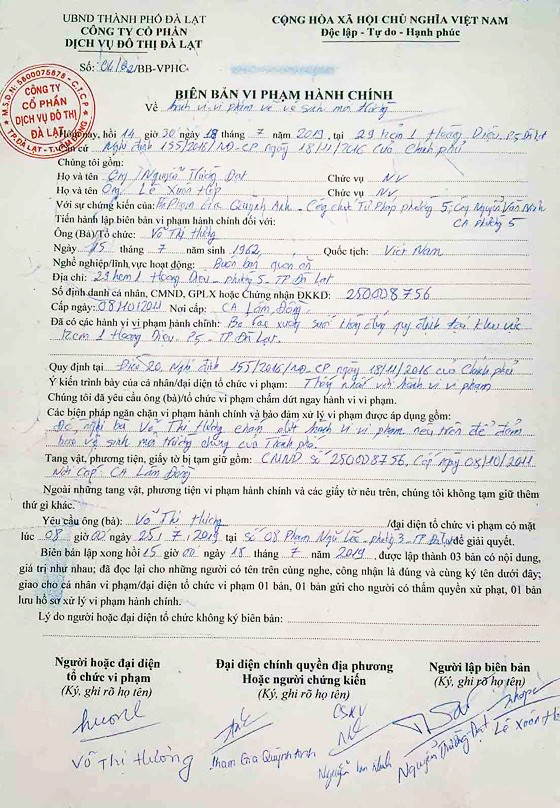 UBND THÀNH PHỐ ĐÀ LẠT
CÔNG TY CỔ PHẦN
DỊCH VỤ ĐÔ THỊ ĐÀ LẠT
Số: /BB-VPHC
CỘNG HÒA XÃ HỘI CHỦ NGHĨA VIỆT NAM
Độc lập - Tự do - Hạnh phúc
M.S.D.N: 5800075878 - C.T.C.P
CÔNG TY
CỔ PHẦN
DỊCH VỤ ĐÔ THỊ
ĐÀ LẠT
BIÊN BẢN VI PHẠM HÀNH CHÍNH
Về hành vi vi phạm về vệ sinh môi trường
Hôm nay, hồi 14 giờ 30 ngày 18 tháng 7 năm 2019, tại 29 hẻm 1 Hoàng Diệu, P5, Đà Lạt
Căn cứ Nghị định 155/2016/NĐ-CP ngày 18/11/2016 của Chính phủ
Chúng tôi gồm:
Họ và tên Ông Nguyễn Thường Đạt Chức vụ NV
Họ và tên Ông Lê Xuân Hợp Chức vụ NV
Với sự chứng kiến của: Phạm Gia Quỳnh Anh - Công chức Tư Pháp phường 5; Ông Nguyễn Văn Ninh
CA phường 5
Tiến hành lập biên bản vi phạm hành chính đối với:
Ông (Bà)/Tổ chức: Võ Thị Hường
Ngày 15 tháng 7 năm sinh 1962 Quốc tịch: Việt Nam
Nghề nghiệp/lĩnh vực hoạt động: Buôn bán quán ăn
Địa chỉ: 29 hẻm 1 Hoàng Diệu - phường 5 - TP Đà Lạt
Số định danh cá nhân, CMND, GPLX hoặc Chứng nhận ĐKKD: 250008756
Cấp ngày: 08/10/2011 Nơi cấp: CA Lâm Đồng
Đã có các hành vi vi phạm hành chính: Bỏ rác xuống suối không đúng quy định tại khu vực
hẻm 1 Hoàng Diệu P5 - TP Đà Lạt.
Quy định tại Điều 20, Nghị định 155/2016/NĐ-CP ngày 18/11/2016 của Chính phủ
Ý kiến trình bày của cá nhân/đại diện tổ chức vi phạm: Thống nhất với hành vi vi phạm
Chúng tôi đã yêu cầu ông (bà)/tổ chức vi phạm chấm dứt ngay hành vi vi phạm.
Các biện pháp ngăn chặn vi phạm hành chính và bảo đảm xử lý vi phạm được áp dụng gồm:
Đề nghị bà Võ Thị Hường chấm dứt hành vi vi phạm nêu trên để đảm
bảo vệ sinh môi trường chung của Thành phố.
Tang vật, phương tiện, giấy tờ bị tạm giữ gồm: CMND số 250008756, Cấp ngày 08/10/2011
Nơi Cấp - CA Lâm Đồng
Ngoài những tang vật, phương tiện vi phạm hành chính và các giấy tờ nêu trên, chúng tôi không tạm giữ thêm
thứ gì khác.
Yêu cầu ông (bà): Võ Thị Hường /đại diện tổ chức vi phạm có mặt
lúc 08 giờ 00 ngày 25/7/2019 tại số 08 Phạm Ngũ Lão - phường 3 - TP Đà Lạt để giải quyết.
Biên bản lập xong hồi 15 giờ 00 ngày 18 tháng 7 năm 2019, được lập thành 03 bản có nội dung,
giá trị như nhau; đã đọc lại cho những người có tên trên cùng nghe, công nhận là đúng và cùng ký tên dưới đây;
giao cho cá nhân vi phạm/đại diện tổ chức vi phạm 01 bản, 01 bản gửi cho người có thẩm quyền xử phạt, 01 bản
lưu hồ sơ xử lý vi phạm hành chính.
Lý do người hoặc đại diện tổ chức không ký biên bản:
Người hoặc đại diện
tổ chức vi phạm
(Ký, ghi rõ họ tên)
Võ Thị Hường
Đại diện chính quyền địa phương
Hoặc người chứng kiến
(Ký, ghi rõ họ tên)
CSKV
Phạm Gia Quỳnh Anh
Nguyễn Văn Ninh
Người lập biên bản
(Ký, ghi rõ họ tên)
Nguyễn Thường Đạt
Lê Xuân Hợp